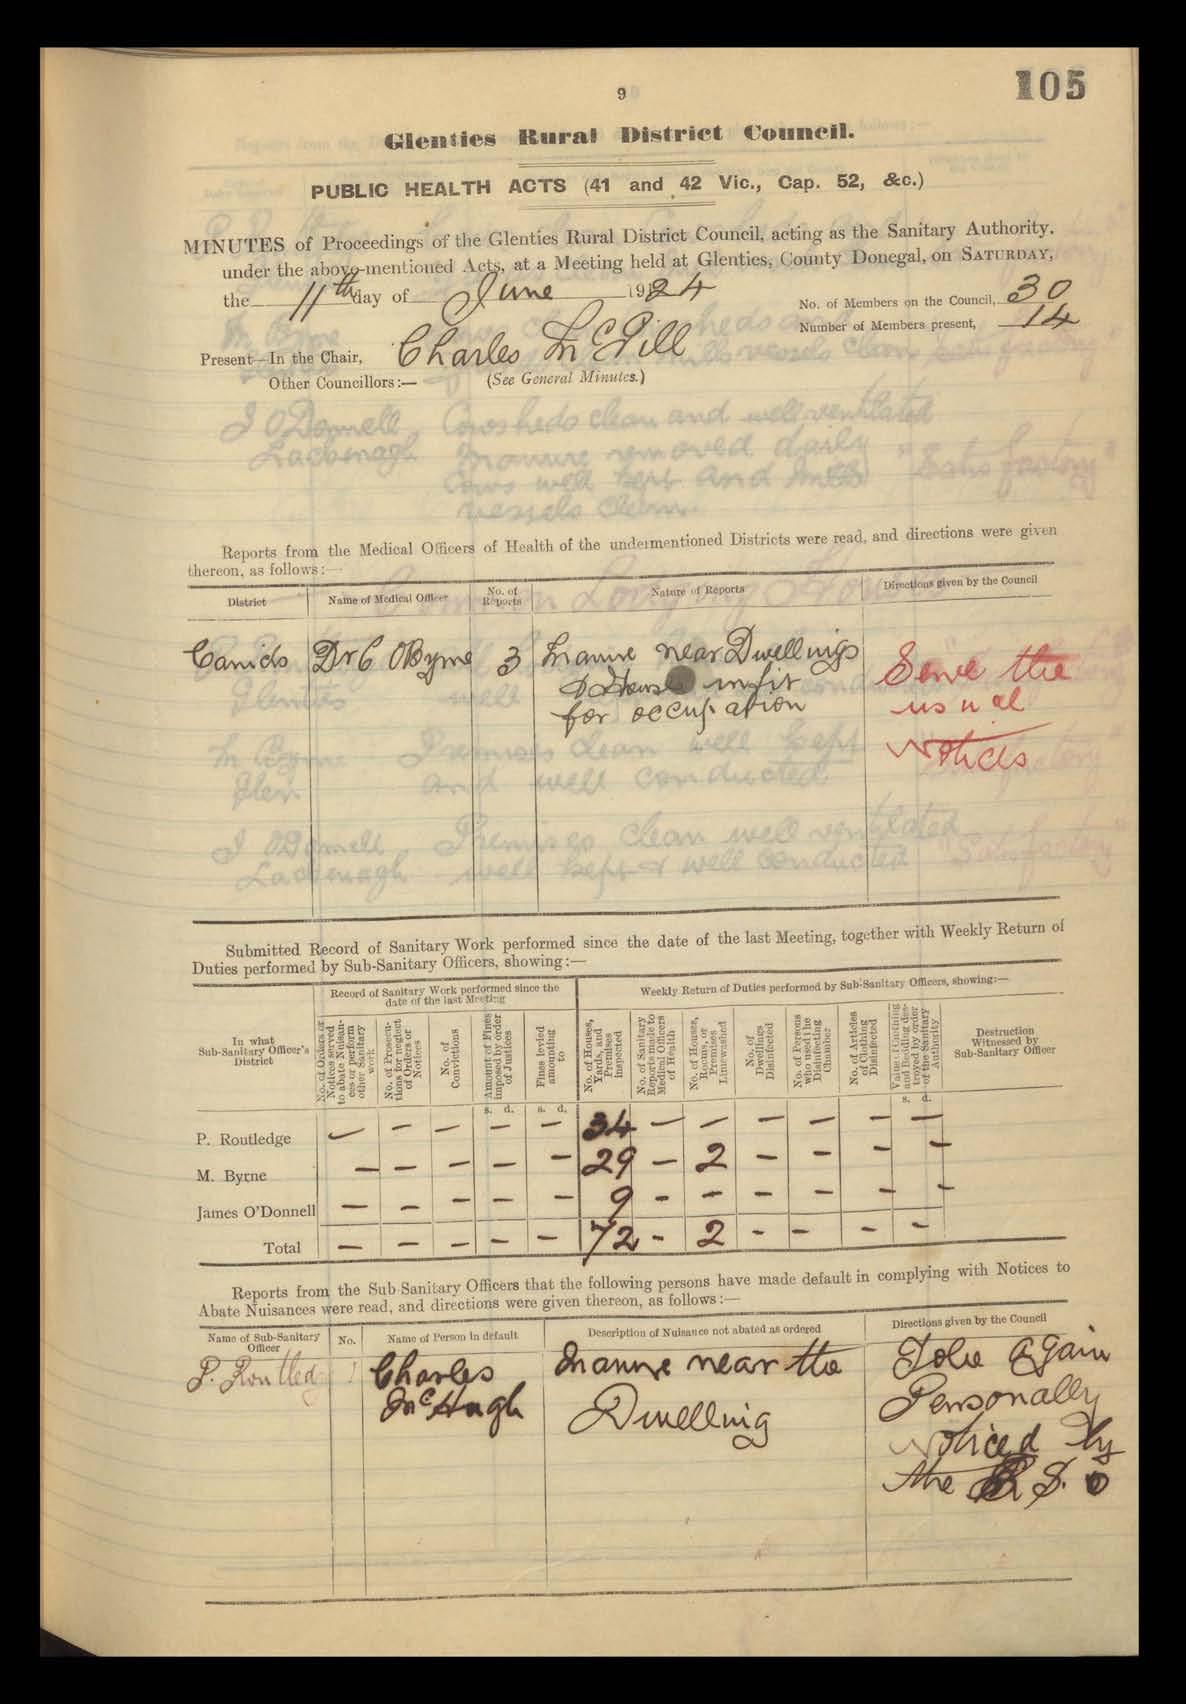 105
9
Glenties Rural District Council.
PUBLIC HEALTH ACTS (41 and 42 Vic., Cap. 52, &c.)
MINUTES of Proceedings of the Glenties Rural District Council, acting as the Sanitary Authority.
under the above-mentioned Acts, at a Meeting held at Glenties, County Donegal, on SATURDAY,
the 11th day of June 1924
No. of Members on the Council, 30
Number of Members present, 14
Present—In the Chair, Charles McGill
Other Councillors:— (See General Minutes.)
Reports from the Medical Officers of Health of the undermentioned Districts were read, and directions were given
thereon, as follows:—
District | Name of Medical Officer | No. of Reports | Nature of Reports | Directions given by the Council
Dr C OByrne 3 Manure near Dwellings
& Houses unfit
for occupation
Serve the
usual
Notices
Submitted Record of Sanitary Work performed since the date of the last Meeting, together with Weekly Return of
Duties performed by Sub-Sanitary Officers, showing:—
In what Sub-Sanitary Officer's District
Record of Sanitary Work performed since the date of the last Meeting
Weekly Return of Duties performed by Sub-Sanitary Officers, showing:—
No. of Orders or Notices served to abate Nuisances or perform other Sanitary work
No. of Prosecutions for neglect of Orders or Notices
No. of Convictions
Amount of Fines imposed by order of Justices
Fines levied amounting to
No. of Houses, Yards, and Premises inspected
No. of Sanitary Reports made to Medical Officers of Health
No. of Houses, Rooms, or Premises Limewashed
No. of Dwellings Disinfected
No. of Persons who used the Disinfecting Chamber
No. of Articles of Clothing Disinfected
Value of Clothing and Bedding destroyed by order of the Sanitary Authority.
Destruction Witnessed by Sub-Sanitary Officer
s. d. s. d. s. d.
P. Routledge — — — — — 34 — — — — — —
M. Byrne — — — — — 29 — 2 — — — —
James O'Donnell — — — — — 9 - - — — — —
Total — — — — — 72 - 2 - - - -
Reports from the Sub Sanitary Officers that the following persons have made default in complying with Notices to
Abate Nuisances were read, and directions were given thereon, as follows:—
Name of Sub-Sanitary Officer | No. | Name of Person in default | Description of Nuisance not abated as ordered | Directions given by the Council
P. Routledg 1 Charles McHugh
Manure near the
Dwelling
To be again
Personally
Noticed by
the S. O